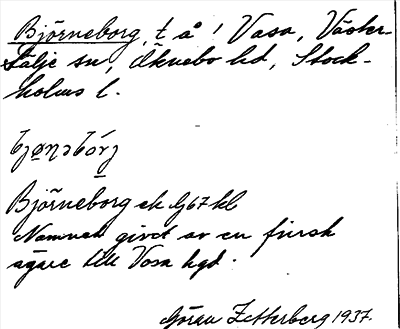 Björneborg, t å ! Vasa, Väster-
tälje sn, Öknebo hd, Stock-
holms l.
Björneborg ek G67 kl
Namnet givet av en finsk
ägare till Vasa hgd.
Göran Zetterberg 1937.